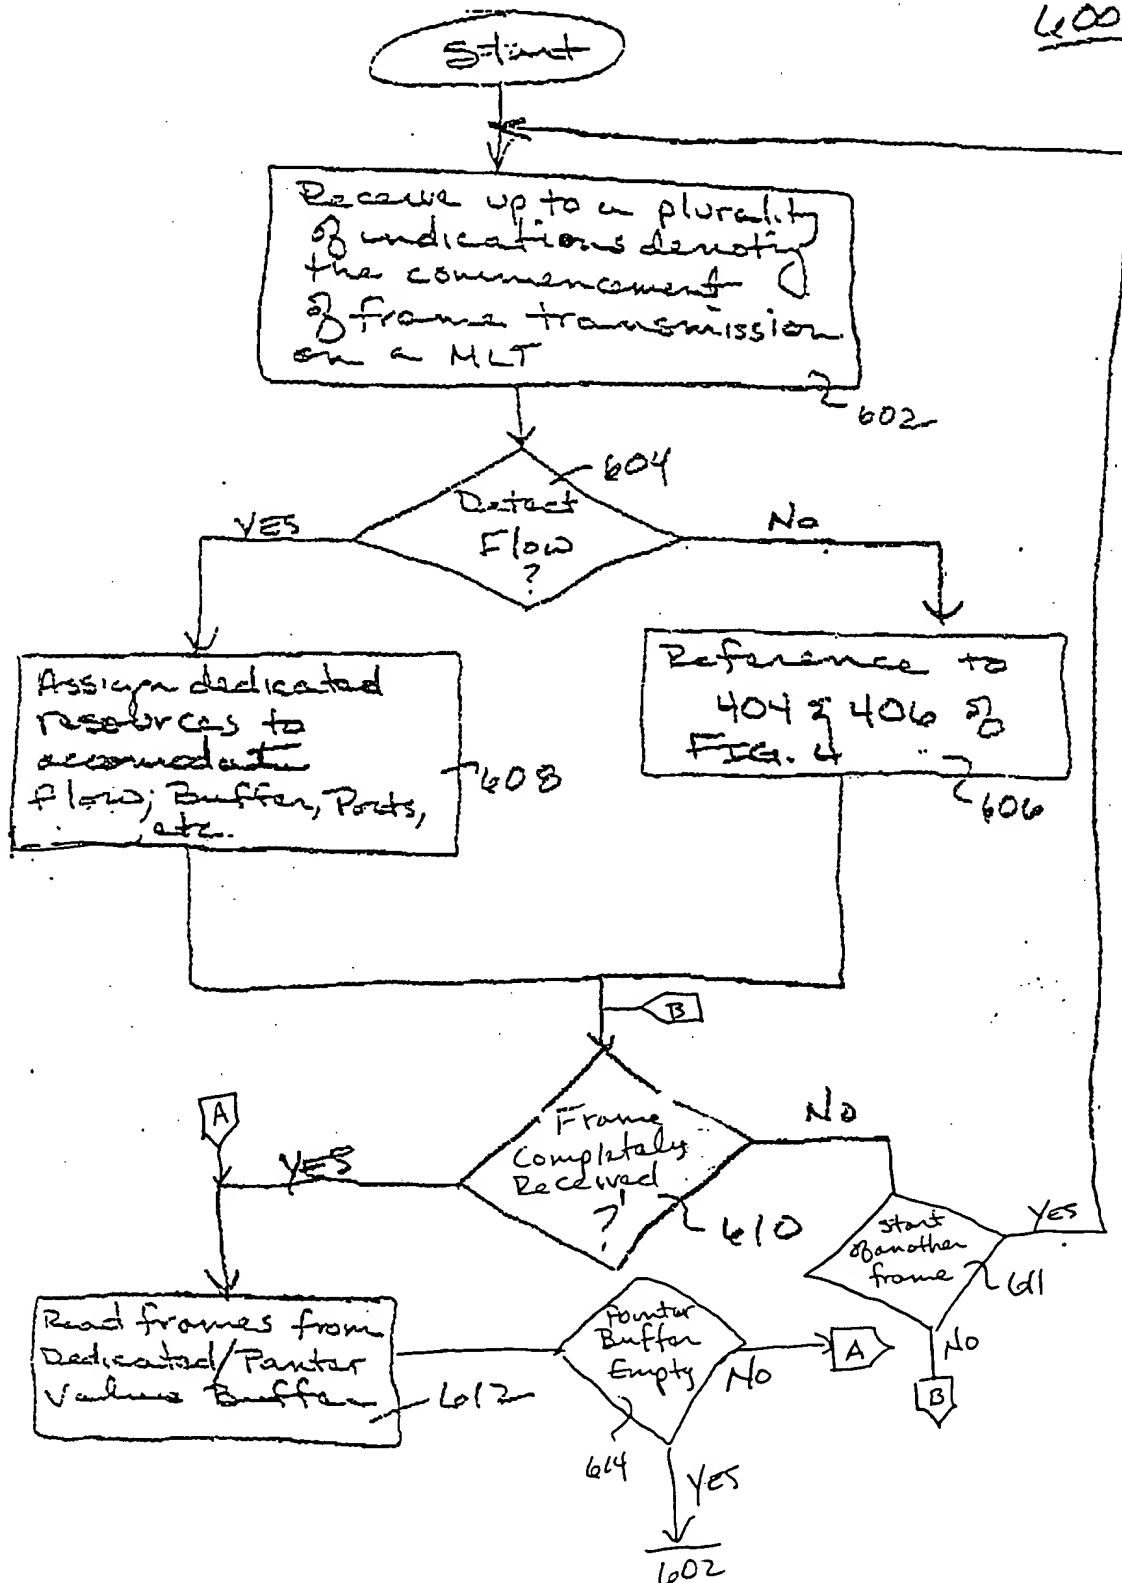 600
Start
Receive up to a plurality
of indications denoting
the commencement
of frame transmission
on a MLT
602
604
Detect
Flow
?
YES
No
Assign dedicated
resources to
accomodate
flow; Buffer, Ports,
etc.
608
Reference to
404 & 406 of
FIG. 4
606
B
A
Frame
Completely
Received
?
YES
No
610
start
of another
frame
YES
611
NO
B
Read frames from
Dedicated/Pointer
Value Buffer
612
Pointer
Buffer
Empty
NO
A
614
YES
602